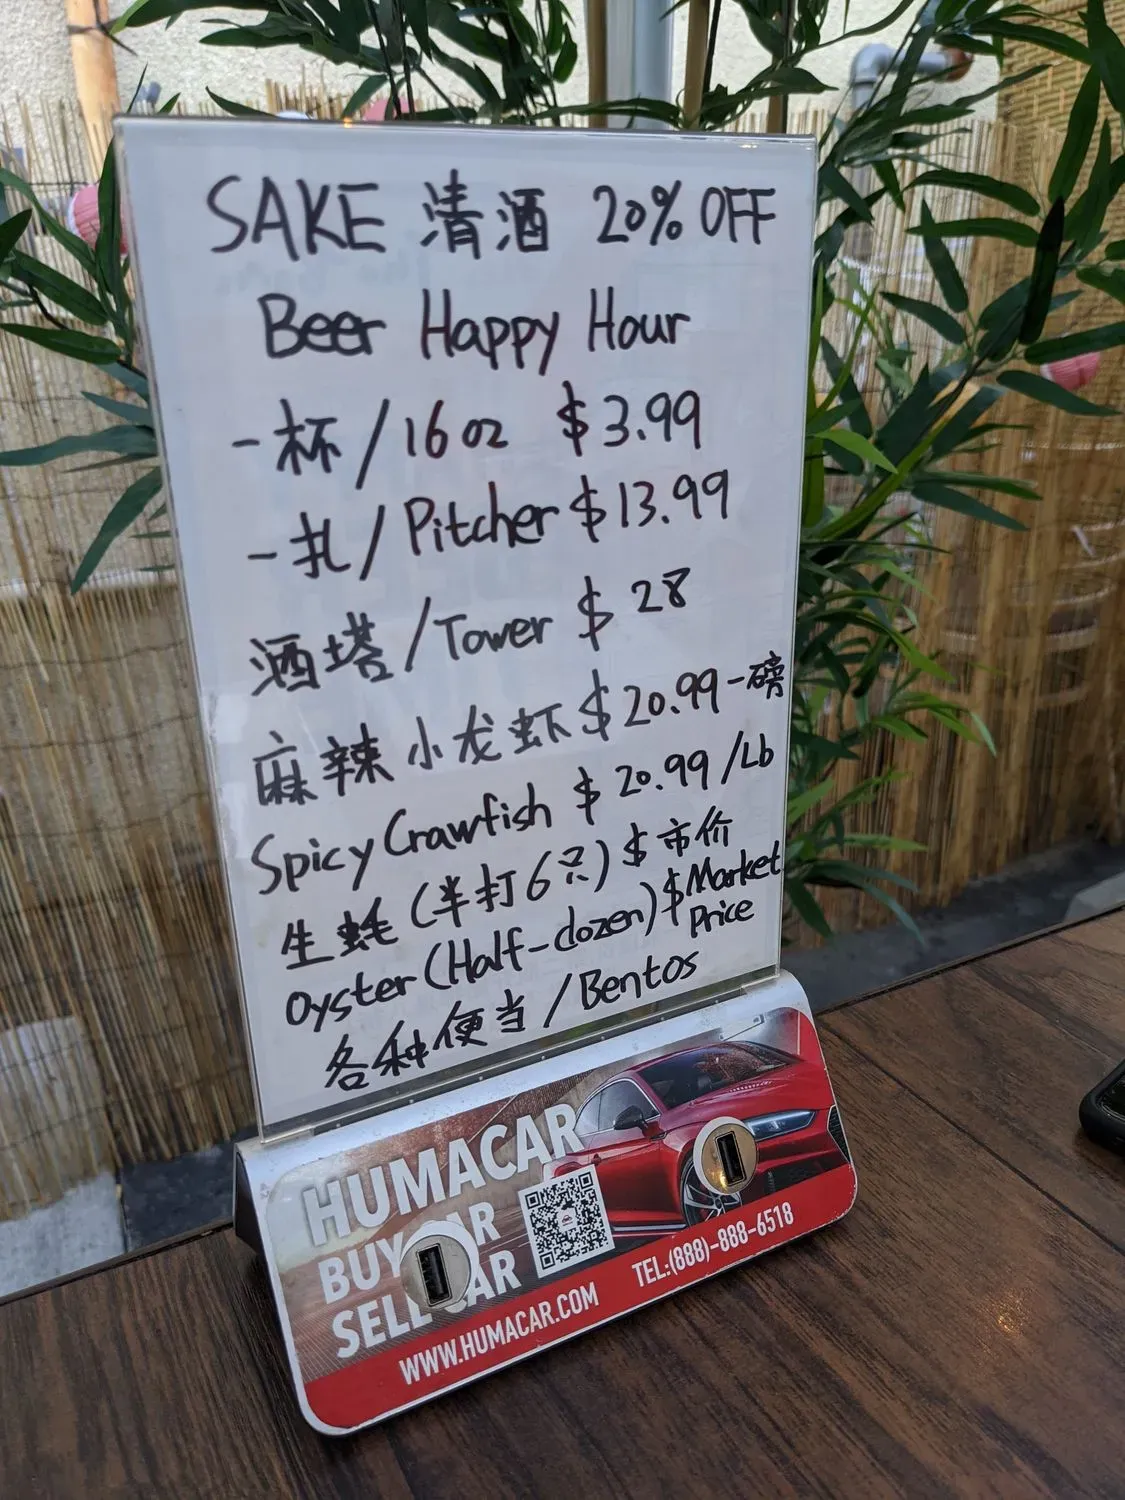 SAKE 清酒 20% OFF
Beer Happy Hour
一杯/16oz $3.99
一扎/Pitcher $13.99
酒塔/Tower $28
麻辣小龙虾 $20.99一磅
Spicy Crawfish $20.99/Lb
生蚝(半打6只) $市价
Oyster(Half-dozen) $Market Price
各种便当/Bentos
HUMACAR
BUY CAR
SELL CAR
WWW.HUMACAR.COM
TEL:(888)-888-6518